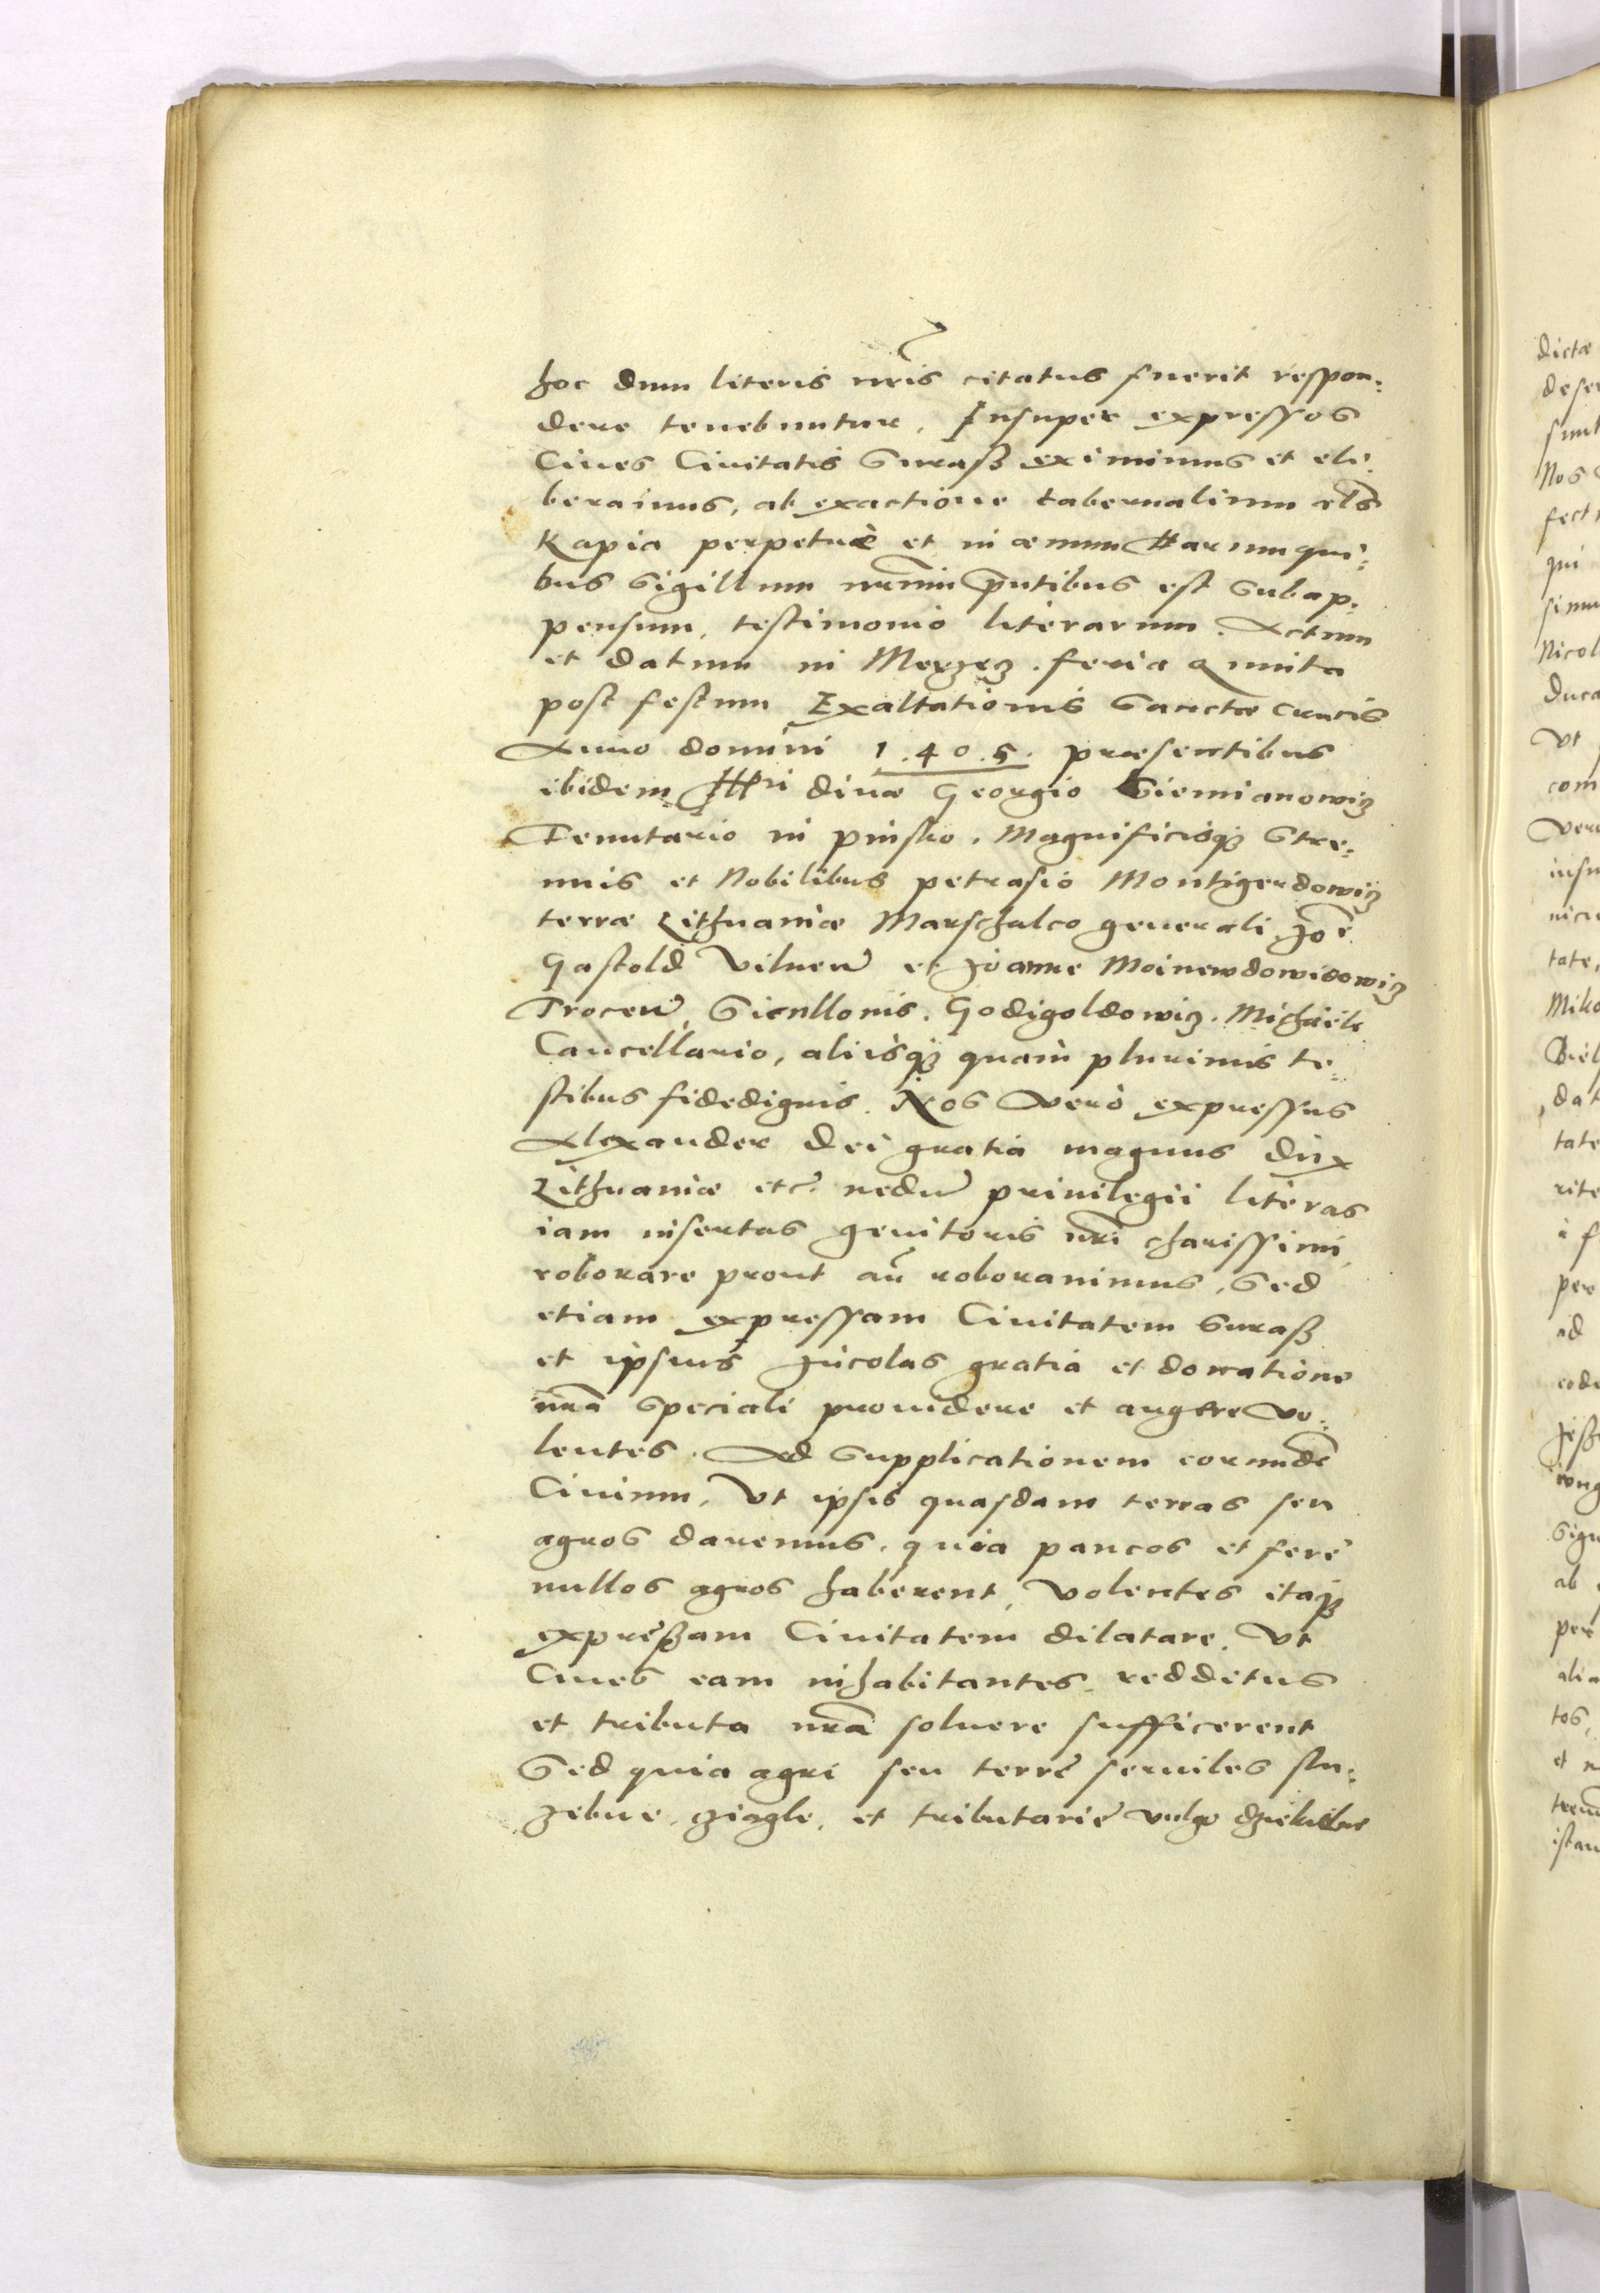 hoc dum literis nr̃is citatus fuerit respon:
dere tenebuntur, Insuper expressos
Ciues Ciuitatis Suraß eximimus et eli:
beramus, ab exactione tabernalium als̃
Kapia perpetuè et in æuum Harum qui:
bus Sigillum nr̃um p̃ntibus est Subap:
pensum, testimonio literarum. Actum
et datum in Merzecz. feria quinta
post festum Exaltationis Sanctæ Crucis
Anno domini 1.4 0.5. præsentibus
ibidem Illri duce Georgio Siemianowicz
Tenutario in pinsko. Magnificisq3 Stre:
nuis et Nobilibus petrasio Montigerdowicz
terræ Lithuaniæ Marschalco generali. Joẽ
Gastold Vilneñ et Joanne Moinewdowidowicz
Troceñ, Sienllonis. Godigoldowicz. Michaële
Cancellario, alijsq3 quam plurimis te:
stibus fidedignis. Nos Verò expressus
Alexander Dei gratia magnus Dux
Lithuaniæ etc̃ nedum̃ priuilegii literas
iam insertas genitoris nr̃i charissimi,
roborare prout aũ roborauimus, Sed
etiam expressam Ciuitatem Suraß
et ipsius Jncolas gratia et donatione
nr̃a Speciali prouidere et augere vo:
lentes. Ad Supplicationem eorundẽ
Ciuium, Vt ipsis quasdam terras seu
agros daremus, quia paucos et ferè
nullos agros haberent, Volentes itaq3
expreßam Ciuitatem dilatare, Vt
Ciues eam inhabitantes redditus
et tributa nr̃a soluere sufficerent
Sed quia agri seu terre seruiles slu:
zebne, cziagle, et tributarie vulgo
dictæ
Nos
qui
Nicol
Duca
Vt
com
tate,
Miko
dat
tate
per
ad
ab
per
alia
tos,
et